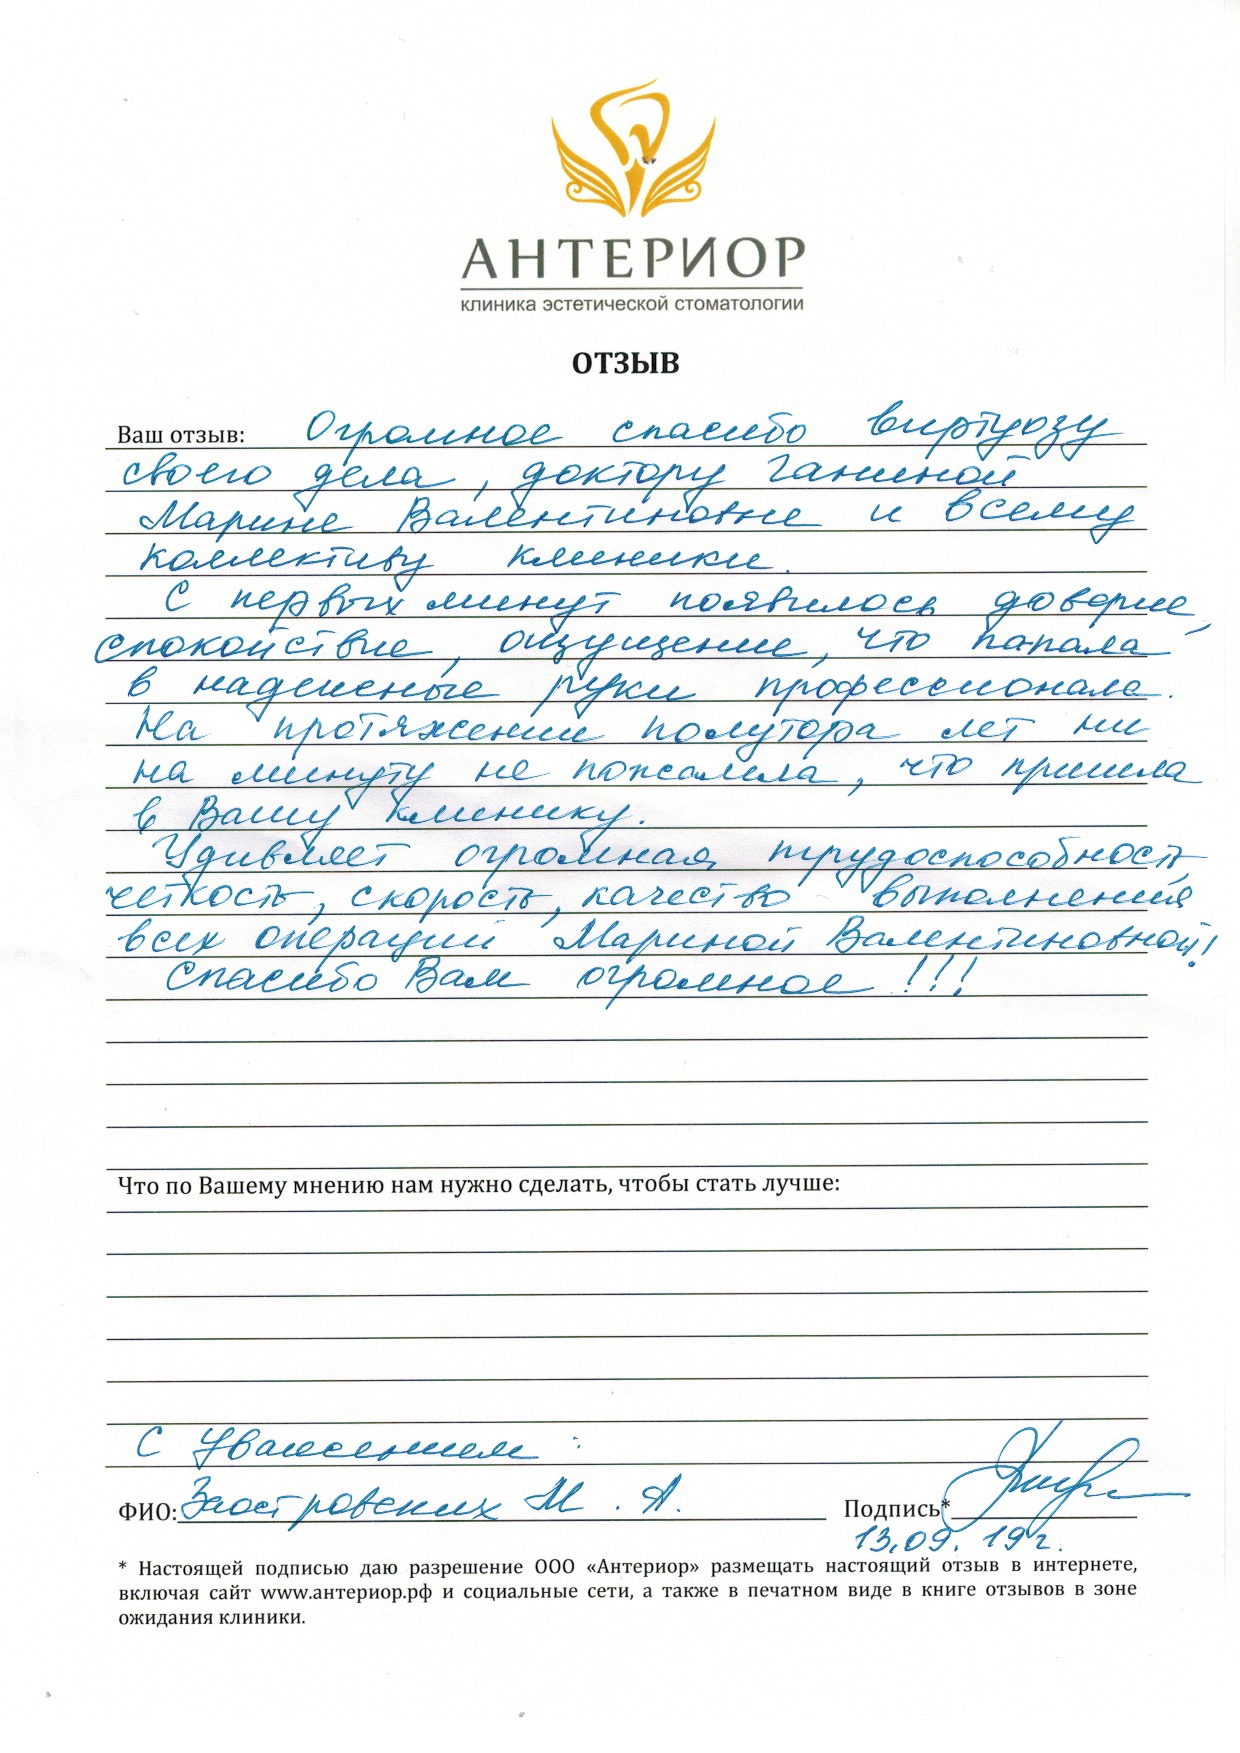 АНТЕРИОР
КЛИНИКА ЭСТЕТИЧЕСКОЙ СТОМАТОЛОГИИ
ОТЗЫВ
Ваш отзыв: Огромное спасибо виртуозу
своего дела, доктору Ганиной
Марине Валентиновне и всему
коллективу клиники.
С первых минут появилось доверие,
спокойствие, ощущение, что попала
в надежные руки профессионала.
На протяжении полутора лет ни
на минуту не пожалела, что пришла
в Вашу клинику.
Удивляет огромная трудоспособность,
четкость, скорость, качество выполнения
всех операций Мариной Валентиновной!
Спасибо Вам огромное!!!
Что по Вашему мнению нам нужно сделать, чтобы стать лучше:
С уважением:
ФИО: Заостровских М. А. Подпись*
13.09.19г.
* Настоящей подписью даю разрешение ООО «Антериор» размещать настоящий отзыв в интернете,
включая сайт www.антериор.рф и социальные сети, а также в печатном виде в книге отзывов в зоне
ожидания клиники.